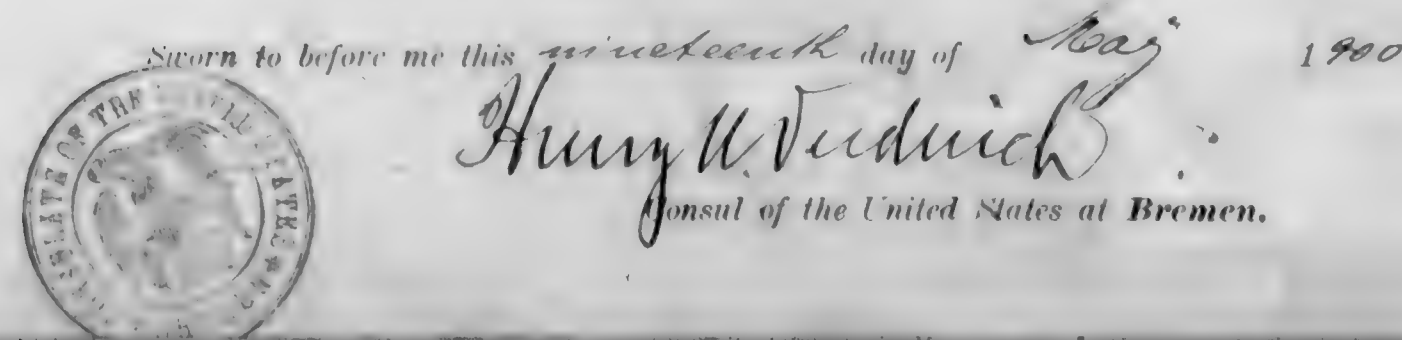 Sworn to before me this nineteenth day of May 1900
Henry W. Diederich
Consul of the United States at Bremen.
CONSULATE OF THE UNITED STATES